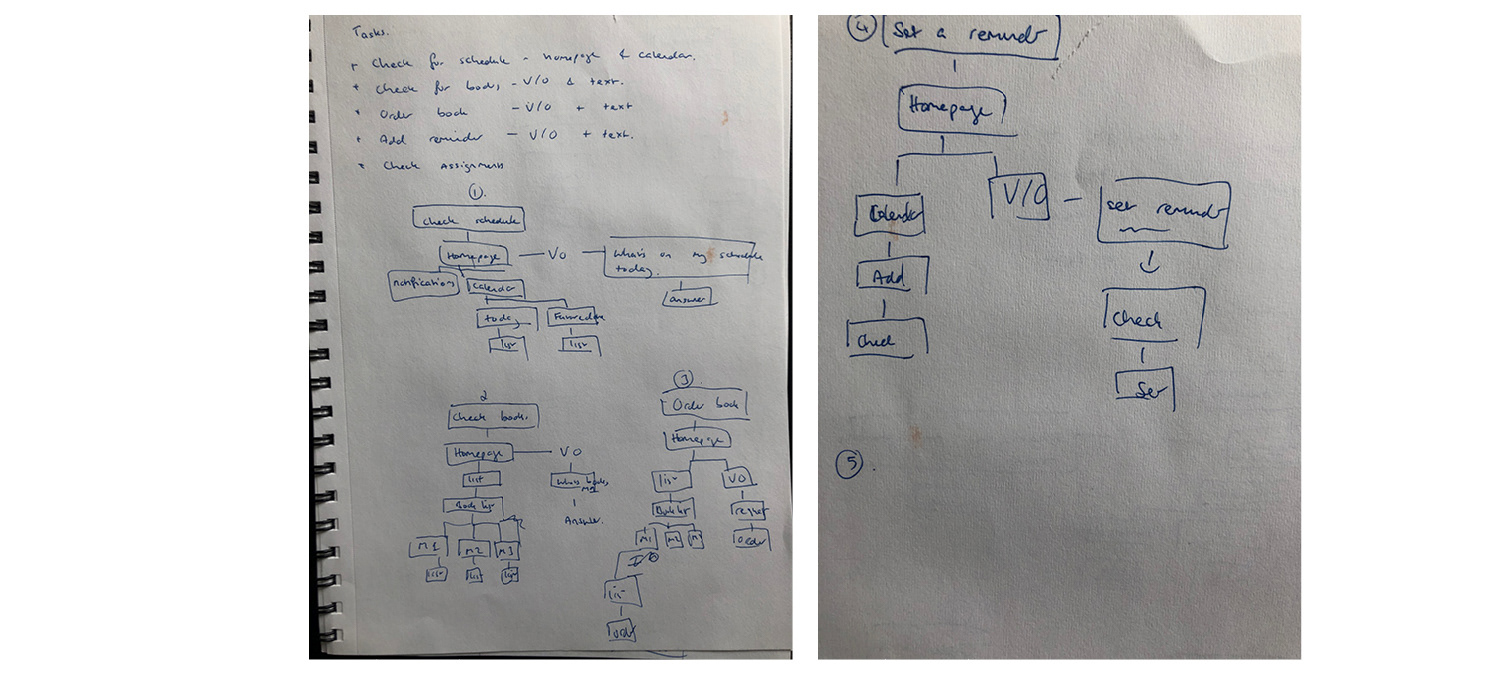 Tasks.
Check for schedule - homepage & calendar.
Check for books - V/O & text.
Order book - V/O + text
Add reminder - V/O + text.
Check Assignments
1.
Check schedule
Homepage - VO - What's on my schedule today.
notifications
Calendar
answer
today
list
list
2
Check books
Homepage - VO
list
What's books M1
Book list
Answer.
M1 M2 M3
list list list
3.
Order book
Homepage
list VO
Book list request
M1 M2 order
list
order
4 Set a reminder
Homepage
Calendar V/O - set reminder
Add
Check
Check
Set
5.